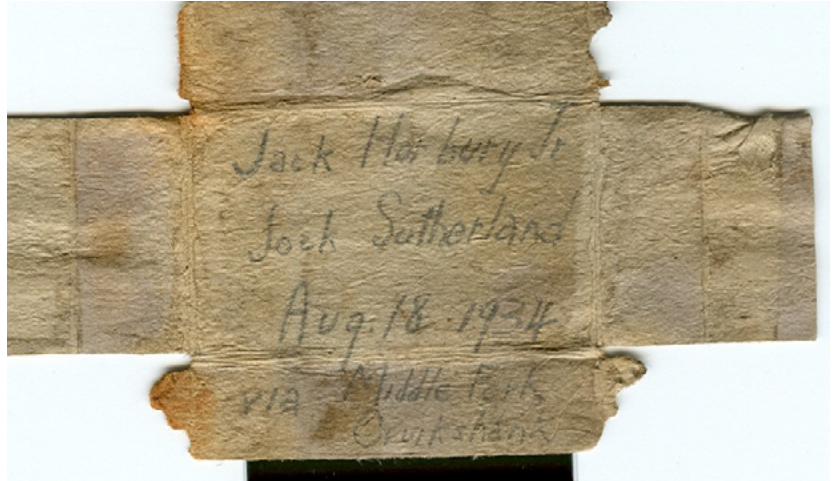 Jack Horbury Jr
Jock Sutherland
Aug. 18. 1934
via Middle Fork
Cruikshank